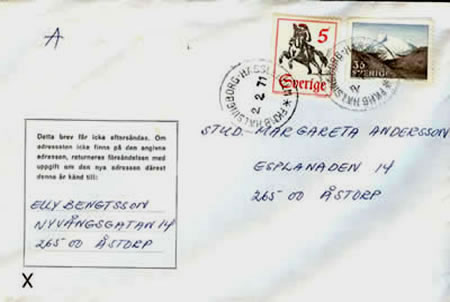 A
5
Sverige
35
SVERIGE
HÄLSINGBORG-HÄSSL
2. 2. 71
PKHB HÄLSINGBORG-HÄ
2
Detta brev får icke eftersändas. Om
adressaten icke finns på den angivna
adressen, returneras försändelsen med
uppgift om den nya adressen därest
denna är känd till:
ELLY BENGTSSON
NYVÅNGSGATAN 14
265 00 ÅSTORP
STUD. MARGARETA ANDERSSON
ESPLANADEN 14
265 00 ÅSTORP
X